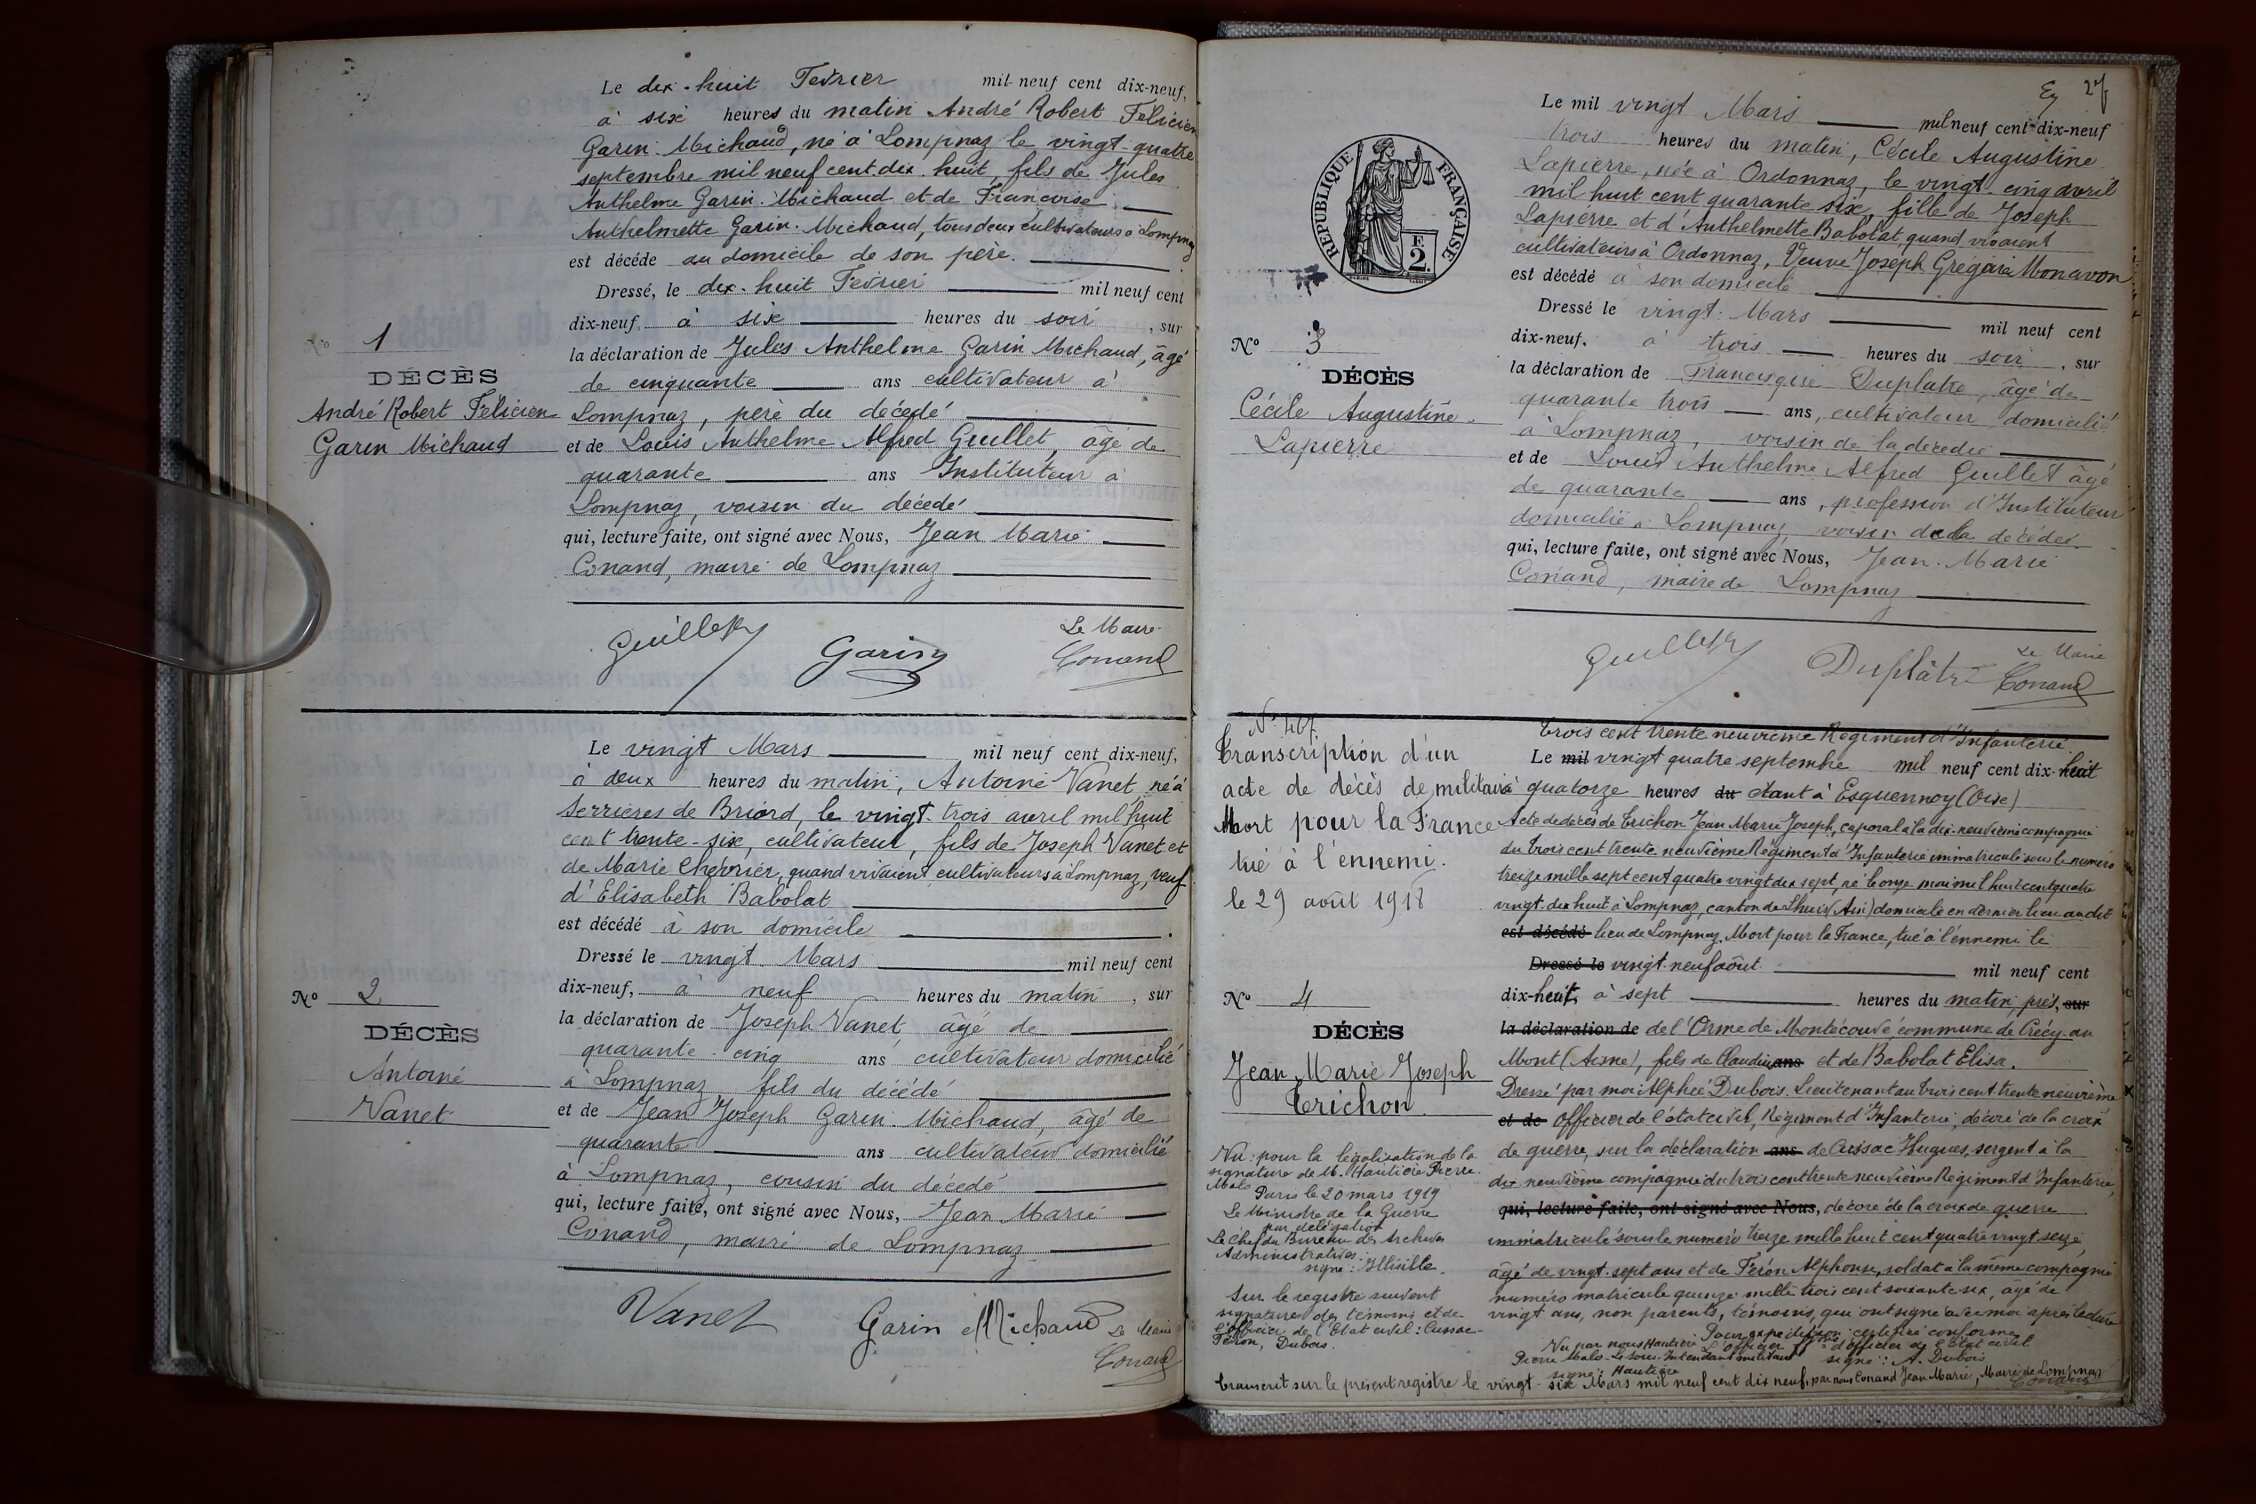 Le dix-huit Fevrier mil neuf cent dix-neuf,
à six heures du matin André Robert Félicien
Garin-Michaud, né à Lompnaz le vingt-quatre
septembre mil neuf cent dix huit, fils de Jules
Anthelme Garin-Michaud et de Françoise
Anthelmette Garin-Michaud, tous deux cultivateurs à Lompnaz
est décédé au domicile de son père.
Dressé, le dix-huit Fevrier mil neuf cent
dix-neuf, à six heures du soir, sur
No 1
la déclaration de Jules Anthelme Garin Michaud, âgé
DÉCÈS
de cinquante ans cultivateur à
André Robert Félicien
Lompnaz, père du décédé
Garin Michaud
et de Louis Anthelme Alfred Guillet, âgé de
quarante ans Instituteur à
Lompnaz, voisin du décédé
qui, lecture faite, ont signé avec Nous, Jean Marie
Conand, maire de Lompnaz
Le Maire
Garin
Conand
Le vingt Mars mil neuf cent dix-neuf,
à deux heures du matin, Antoine Vanet né à
Serrières de Briord, le vingt-trois avril mil huit
cent trente-six, cultivateur, fils de Joseph Vanet et
de Marie Chevrier, quand vivaient cultivateurs à Lompnaz, veuf
d'Elisabeth Babolat
est décédé à son domicile.
Dressé le vingt Mars mil neuf cent
No 2
dix-neuf, à neuf heures du matin, sur
DÉCÈS
la déclaration de Joseph Vanet, âgé de
Antoine
quarante-cinq ans cultivateur domicilié
à Lompnaz fils du décédé
Vanet
et de Jean Joseph Garin-Michaud, âgé de
quarante ans cultivateur domicilié
à Lompnaz, cousin du décédé
qui, lecture faite, ont signé avec Nous, Jean Marie
Conand, maire de Lompnaz
Vanet
Garin Michaud
Le Maire
Conand
27
Le mil vingt Mars mil neuf cent dix-neuf
trois heures du matin, Cécile Augustine
Lapierre, née à Ordonnaz, le vingt-cinq avril
mil huit cent quarante six, fille de Joseph
Lapierre et d'Anthelmette Babolat quand vivaient
cultivateurs à Ordonnaz, Veuve Joseph Grégoire Monavon
est décédé à son domicile
RÉPUBLIQUE FRANÇAISE
F
2.
Dressé le vingt Mars mil neuf cent
No 3
dix-neuf. à trois heures du soir, sur
DÉCÈS
la déclaration de Francisque Duplatre, âgé de
Cécile Augustine
quarante trois ans, cultivateur domicilié
Lapierre
à Lompnaz, voisin de la décédée
et de Louis Anthelme Alfred Guillet âgé
de quarante ans, profession d'Instituteur
domicilié à Lompnaz, voisin de la décédée
qui, lecture faite, ont signé avec Nous, Jean-Marie
Conand, maire de Lompnaz
Duplâtre
Le Maire
Conand
Transcription d'un
acte de décès de militaire
Mort pour la France
tué à l'ennemi.
le 29 août 1918
No 4
DÉCÈS
Jean Marie Joseph
Trichon
Vu: pour la légalisation de la
signature de M. Hautière Pierre
Malo
Paris le 20 mars 1919
Le Ministre de la Guerre
par délégation
Le Chef du Bureau des Archives
Administratives
signé: Illisible.
Sur le registre suivent
signatures des témoins et de
l'officier de l'Etat civil: Cussac
Féron, Dubois.
trois cent trente neuvième Régiment d'Infanterie
Le mil vingt quatre septembre mil neuf cent dix-huit
à quatorze heures du étant à Esquennoy (Oise)
Acte de décès de Trichon Jean Marie Joseph, caporal à la dix-neuvième compagnie
du trois cent trente neuvième Régiment d'Infanterie immatriculé sous le numéro
treize mille sept cent quatre vingt dix sept, né le onze mai mil huit cent quatre
vingt-dix huit à Lompnaz, canton de Lhuis (Ain) domicilié en dernier lieu au dit
est décédé lieu de Lompnaz. Mort pour la France, tué à l'ennemi le
Dressé le vingt-neuf août mil neuf cent
dix-huit, à sept heures du matin, près, sur
la déclaration de de l'Orme de Montécouvé, commune de Crécy-au
Mont (Aisne), fils de Claudius ans et de Babolat Elisa.
Dressé par moi Alphée Dubois. Lieutenant au trois cent trente neuvième
et de Officier de l'état civil, Régiment d'Infanterie, décoré de la croix
de guerre, sur la déclaration ans de Cussac Hugues, sergent à la
dix neuvième compagnie du trois cent trente neuvième Régiment d'Infanterie,
qui, lecture faite, ont signé avec Nous, décoré de la croix de guerre
immatriculé sous le numéro treize mille huit cent quatre vingt seize,
âgé de vingt-sept ans et de Féron Alphonse, soldat à la même compagnie
numéro matricule quinze mille trois cent soixante six, âgé de
vingt ans, non parents, témoins, qui ont signé avec moi après lecture
Pour expédition certifiée conforme
Vu par nous Hautière L'officier d'officier de l'état civil
Pierre Malo. Le Sous-Intendant militaire signé: A. Dubois
signé: Hautière
Transcrit sur le présent registre le vingt-six Mars mil neuf cent dix neuf, par nous Conand Jean Marie, Maire de Lompnaz
Conand